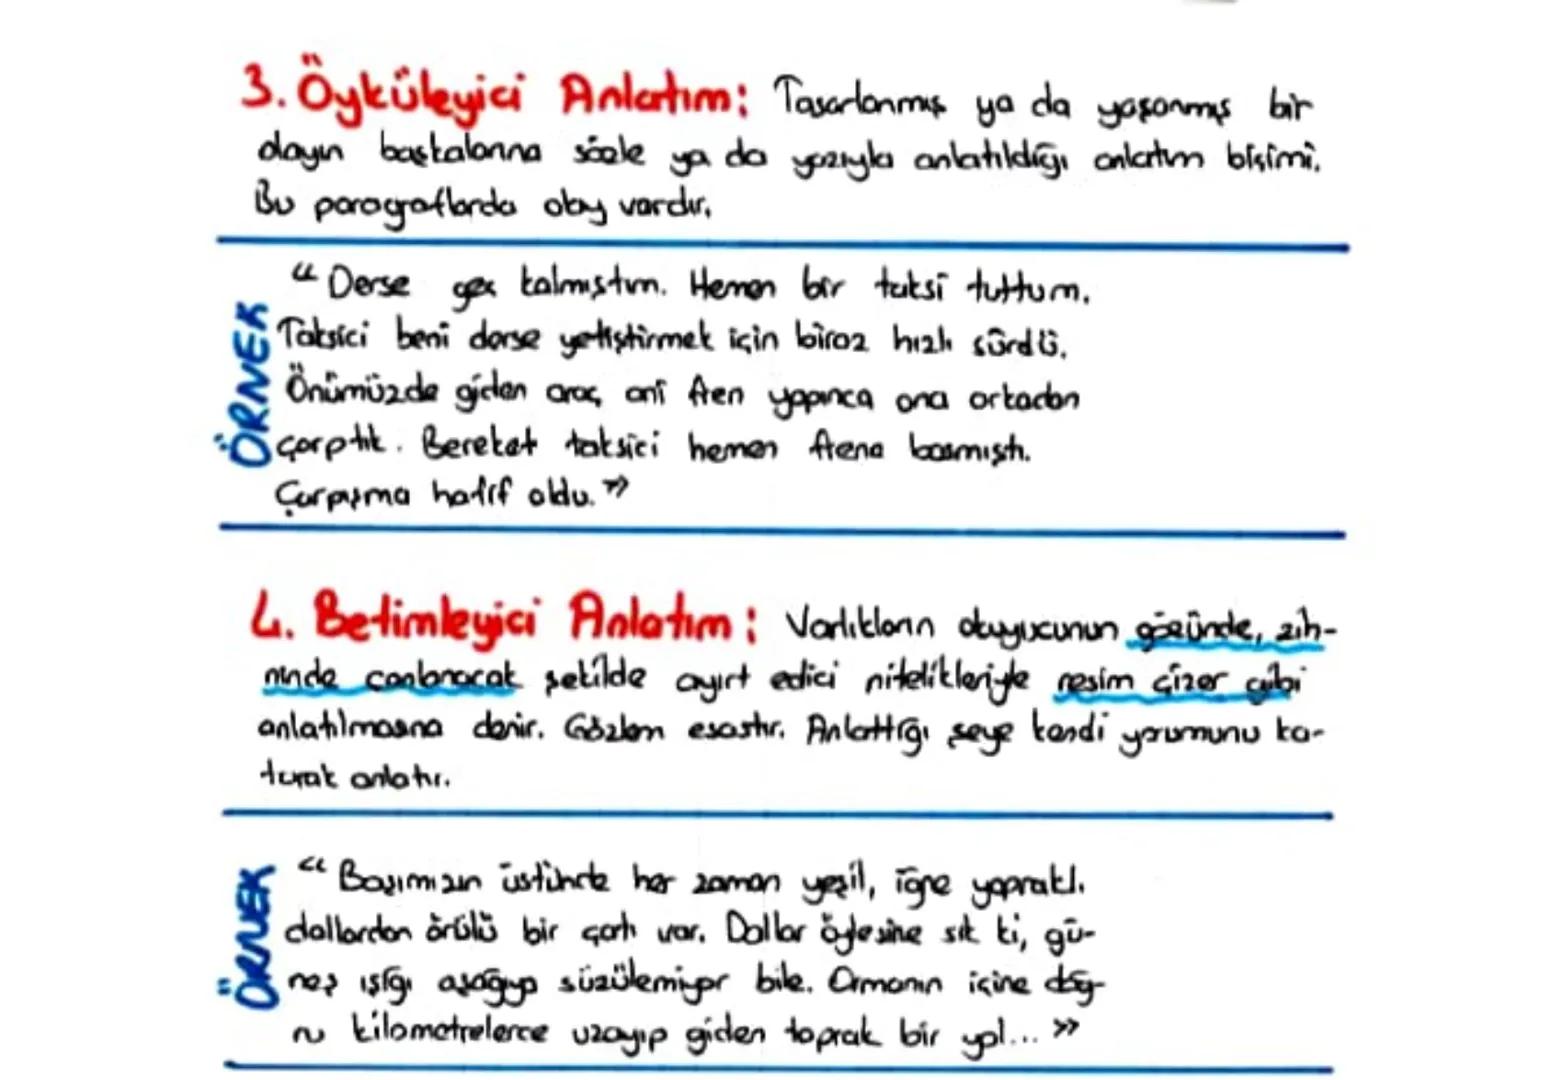 3. Öyküleyici Anlatım: Tasarlanmış ya da yaşanmış bir
olayın başkalarına sözle ya da yazıyla anlatıldığı anlatım bişimi.
Bu paragraflarda olay vardır.
ÖRNEK
“ Derse geç kalmıştım. Hemen bir taksi tuttum.
Taksici beni derse yetiştirmek için biraz hızlı sürdü.
Önümüzde giden araç, ani fren yapınca ona arkadan
çarptık. Bereket taksici hemen frene basmıştı.
Çarpışma hafif oldu. ”
4. Betimleyici Anlatım: Varlıkların okuyucunun gözünde, zih-
ninde canlanacak şekilde ayırt edici nitelikleriyle resim çizer gibi
anlatılmasına denir. Gözlem esastır. Anlattığı şeye kendi yorumunu ka-
tarak anlatır.
ÖRNEK
“ Başımızın üstünde her zaman yeşil, iğne yapraklı
dallardan örülü bir çatı var. Dallar öylesine sık ki, gü-
neş ışığı aşağıya süzülemiyor bile. Ormanın içine doğ-
ru kilometrelerce uzayıp giden toprak bir yol... ”